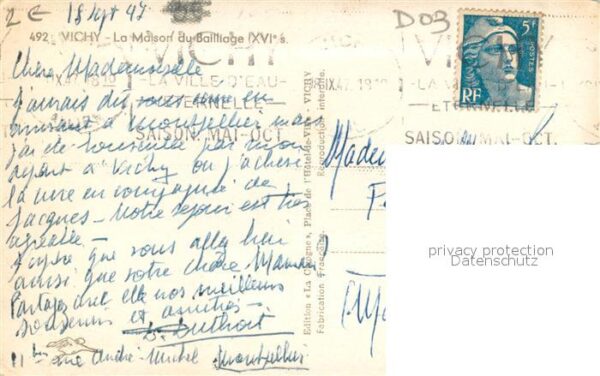 2 € 18 Sept 47
D03
492 _ VICHY - La Maison du Bailliage (XVIe s.
VICHY
LA VILLE D'EAU
ETERNELLE
SAISON MAI-OCT.
IX 47
ETERNELLE
SAISON MAI-OCT.
5F
POSTES
RF
Chère Mademoiselle
J'avais dit
arrivant à Montpellier mais
j'ai
ayant à Vichy où j'achève
la cure en compagnie de
Jacques - Notre séjour est très
agréable -
J'espère que vous allez bien
ainsi que votre chère Maman
Partagez avec elle nos meilleurs
souvenirs et amitiés -
11 bis rue André Michel Montpellier
Edition « La Cigogne », Place de l'Hôtel-de-Ville - VICHY
Fabrication Française. Reproduction interdite.
Madem
privacy protection
Datenschutz